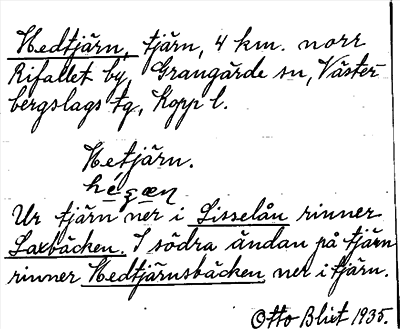 Hedtjärn, tjärn, 4 km. norr
Rifallet by, Grangärde sn, Väster-
bergslags tg, Kopp l.
Hetjärn.
hégæn
Ur tjärn ner i Lisselån rinner
Laxbäcken. I södra ändan på tjärn
rinner Hedtjärnsbäcken ner i tjärn.
Otto Blixt 1935.